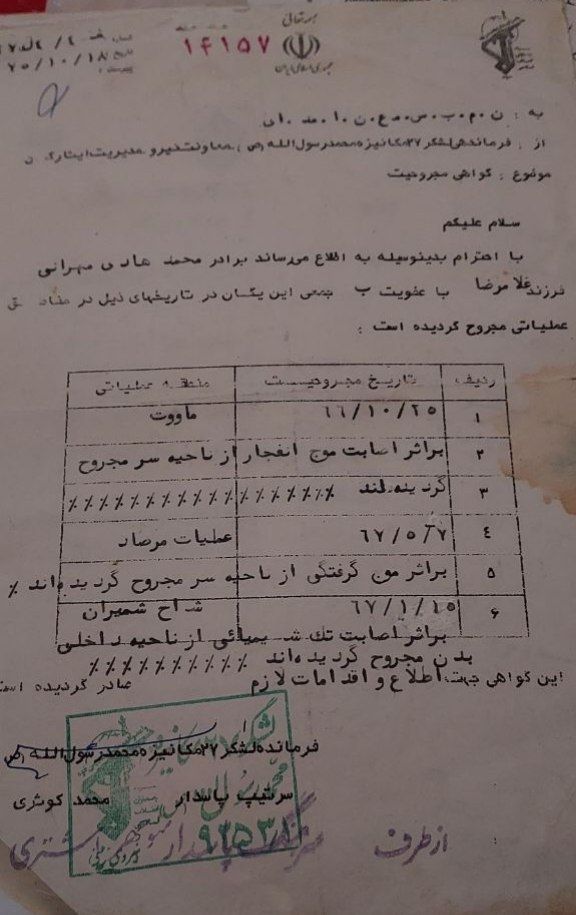 بسمه تعالی
جمهوری اسلامی ایران
۱۴۱۵۷
۷۵/۱۰/۱۸
به : ن.م.ب.س.ع.ن.ا
از : فرماندهی لشگر ۲۷ مکانیزه محمدرسول‌الله (ص) معاونت نیرو مدیریت ایثارگران
موضوع : گواهی مجروحیت
سلام علیکم
با احترام بدینوسیله به اطلاع می‌رساند برادر محمد هادی مهرانی
فرزند غلامرضا با عضویت ب جمعی این یگان در تاریخهای ذیل در مناطق
عملیاتی مجروح گردیده است :
ردیف تاریخ مجروحیت منطقه عملیاتی
۱ ۶۶/۱۰/۲۵ ماووت
۲ براثر اصابت موج انفجار از ناحیه سر مجروح
۳ گردیده‌اند ٪٪٪٪٪٪٪٪٪٪٪٪٪٪٪٪٪٪
٤ ۶۷/۵/۷ عملیات مرصاد
۵ براثر موج گرفتگی از ناحیه سر مجروح گردیده‌اند ٪
۶ ۶۷/۱/۱۵ شاخ شمیران
براثر اصابت تک شیمیائی از ناحیه داخلی
بدن مجروح گردیده‌اند ٪٪٪٪٪٪٪٪٪٪
این گواهی جهت اطلاع و اقدامات لازم صادر گردیده است
فرمانده لشگر ۲۷ مکانیزه محمدرسول‌الله (ص)
سرتیپ پاسدار محمد کوثری
از طرف